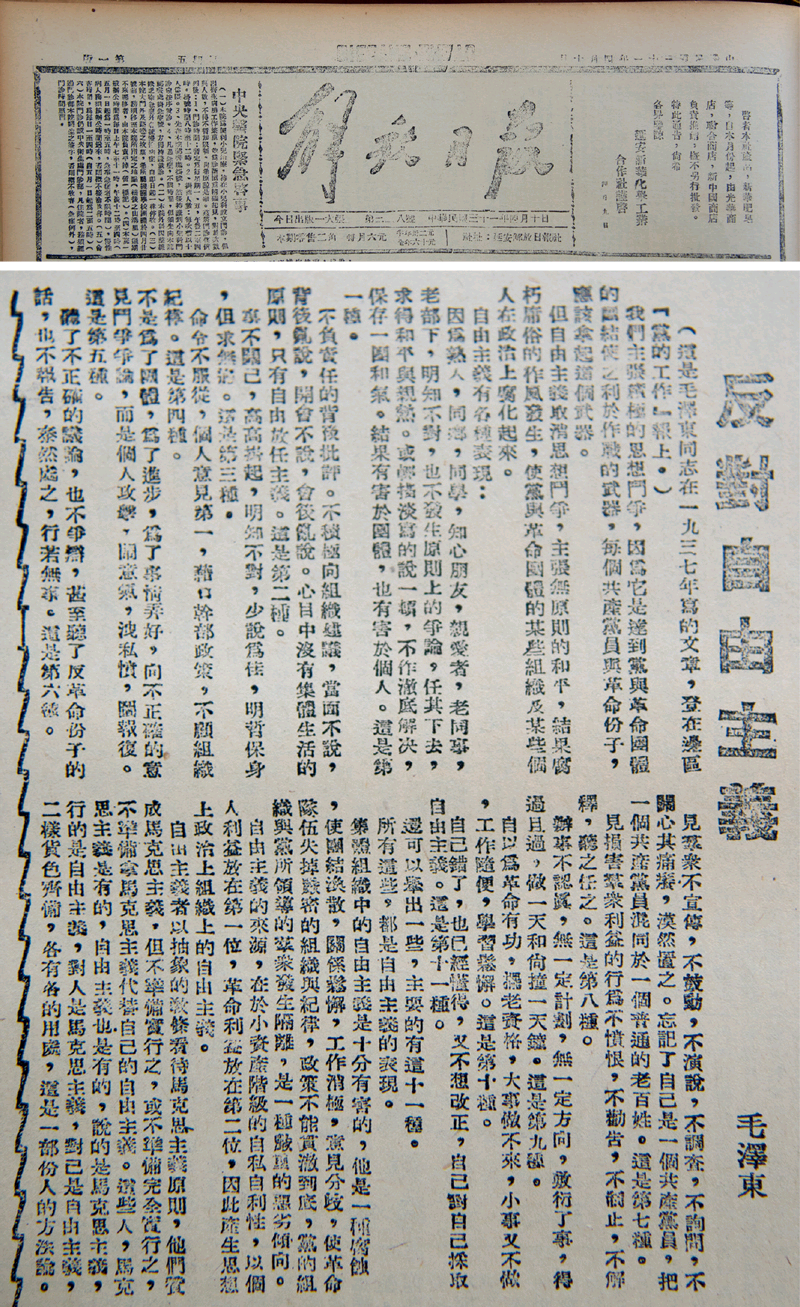 敬者本社出品，新華肥皂
等，自本月份起，由光華商
店，聯合商店，新中國商店
負責推銷，概不另行批發。
特此通告，尚希
各界鑒諒
延安新華化學工業
合作社謹啓
四月九日
解放日報
中華民國三十一年四月十日
第三二八號
今日出版一大張
社址：延安解放日報社
每月六元
本期零售二角
中央醫院緊急啓事
反對自由主義
毛澤東
（這是毛澤東同志在一九三七年寫的文章，登在邊區
『黨的工作』報上。）
我們主張積極的思想鬥爭，因爲它是達到黨與革命團體
的團結使之利於作戰的武器，每個共產黨員與革命份子，
應該拿起這個武器。
但自由主義取消思想鬥爭，主張無原則的和平，結果腐
朽庸俗的作風發生，使黨與革命團體的某些組織及某些個
人在政治上腐化起來。
自由主義有各種表現：
因爲熟人，同鄉，同學，知心朋友，親愛者，老同事，
老部下，明知不對，也不發生原則上的爭論，任其下去，
求得和平與親熱。或輕描淡寫的說一頓，不作澈底解決，
保存一團和氣。結果有害於團體，也有害於個人。這是第
一種。
不負責任的背後批評。不積極向組織建議，當面不說，
背後亂說，開會不說，會後亂說。心目中沒有集體生活的
原則，只有自由放任主義。這是第二種。
事不關己，高高掛起，明知不對，少說爲佳，明哲保身
，但求無過。這是第三種。
命令不服從，個人意見第一，藉口幹部政策，不顧組織
紀律。這是第四種。
不是爲了團體，爲了進步，爲了事情弄好，向不正確的意
見鬥爭爭論，而是個人攻擊，鬧意氣，洩私憤，圖報復。
這是第五種。
聽了不正確的議論，也不爭辯，甚至聽了反革命份子的
話，也不報告，泰然處之，行若無事。這是第六種。
見羣衆不宣傳，不鼓動，不演說，不調查，不詢問，不
關心其痛癢，漠然置之。忘記了自己是一個共產黨員，把
一個共產黨員混同於一個普通的老百姓。這是第七種。
見損害羣衆利益的行爲不憤恨，不勸告，不制止，不解
釋，聽之任之。這是第八種。
辦事不認眞，無一定計劃，無一定方向，敷衍了事，得
過且過，做一天和尚撞一天鐘。這是第九種。
自以爲革命有功，擺老資格，大事做不來，小事又不做
，工作隨便，學習鬆懈。這是第十種。
自己錯了，也已經懂得，又不想改正，自己對自己採取
自由主義。這是第十一種。
還可以舉出一些，主要的有這十一種。
所有這些，都是自由主義的表現。
集體組織中的自由主義是十分有害的，他是一種腐蝕
，使團結渙散，關係鬆懈，工作消極，意見分歧，使革命
隊伍失掉嚴密的組織與紀律，政策不能貫澈到底，黨的組
織與黨所領導的羣衆發生隔離，是一種嚴重的惡劣傾向。
自由主義的來源，在於小資產階級的自私自利性，以個
人利益放在第一位，革命利益放在第二位，因此產生思想
上政治上組織上的自由主義。
自由主義者以抽象的敎條看待馬克思主義原則，他們贊
成馬克思主義，但不準備實行之，或不準備完全實行之，
不準備拿馬克思主義代替自己的自由主義。這些人，馬克
思主義是有的，自由主義也是有的，說的是馬克思主義，
行的是自由主義，對人是馬克思主義，對己是自由主義，
二樣貨色齊備，各有各的用處，這是一部份人的方法論。